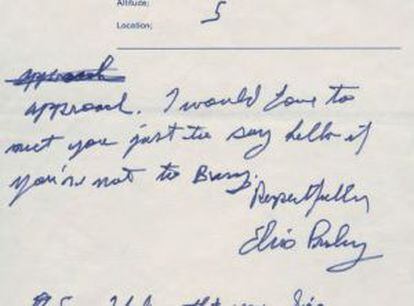 Altitude;
5
Location;
approach
approach. I would Love to
meet you just to say hello if
you're not to Busy.
Respectfully
Elvis Presley